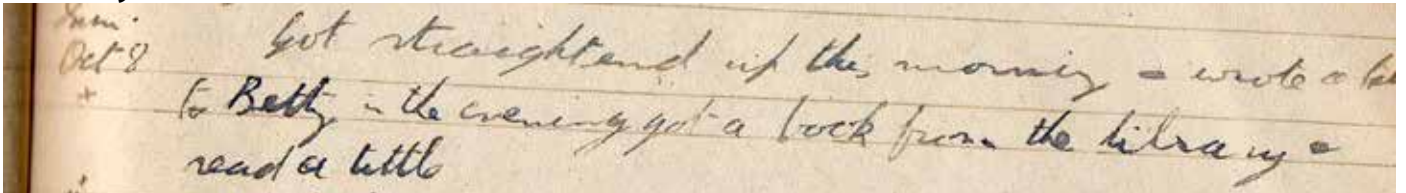 Sun.
Oct 8
Got straightend up this morning & wrote a le
to Betty in the evening got a book from the library &
read a little